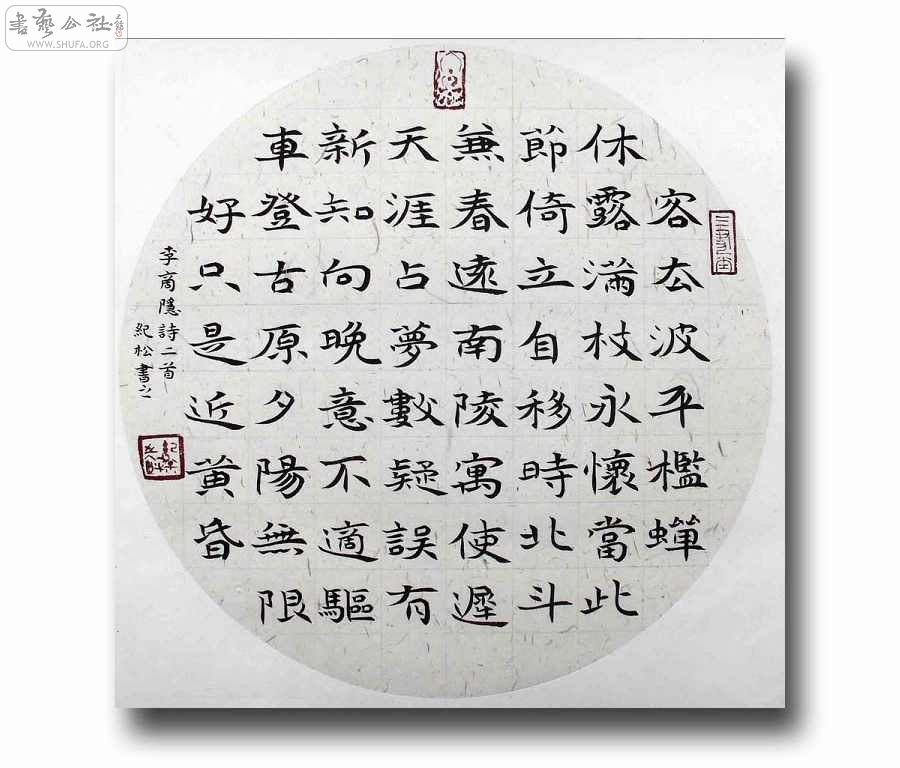 書藝公社
WWW.SHUFA.ORG
客去波平檻蟬
休露滿枝永懷當此
節倚立自移時北斗
兼春遠南陵寓使遲
天涯占夢數疑誤有
新知向晚意不適驅
車登古原夕陽無限
好只是近黃昏
李商隱詩二首
紀松書之